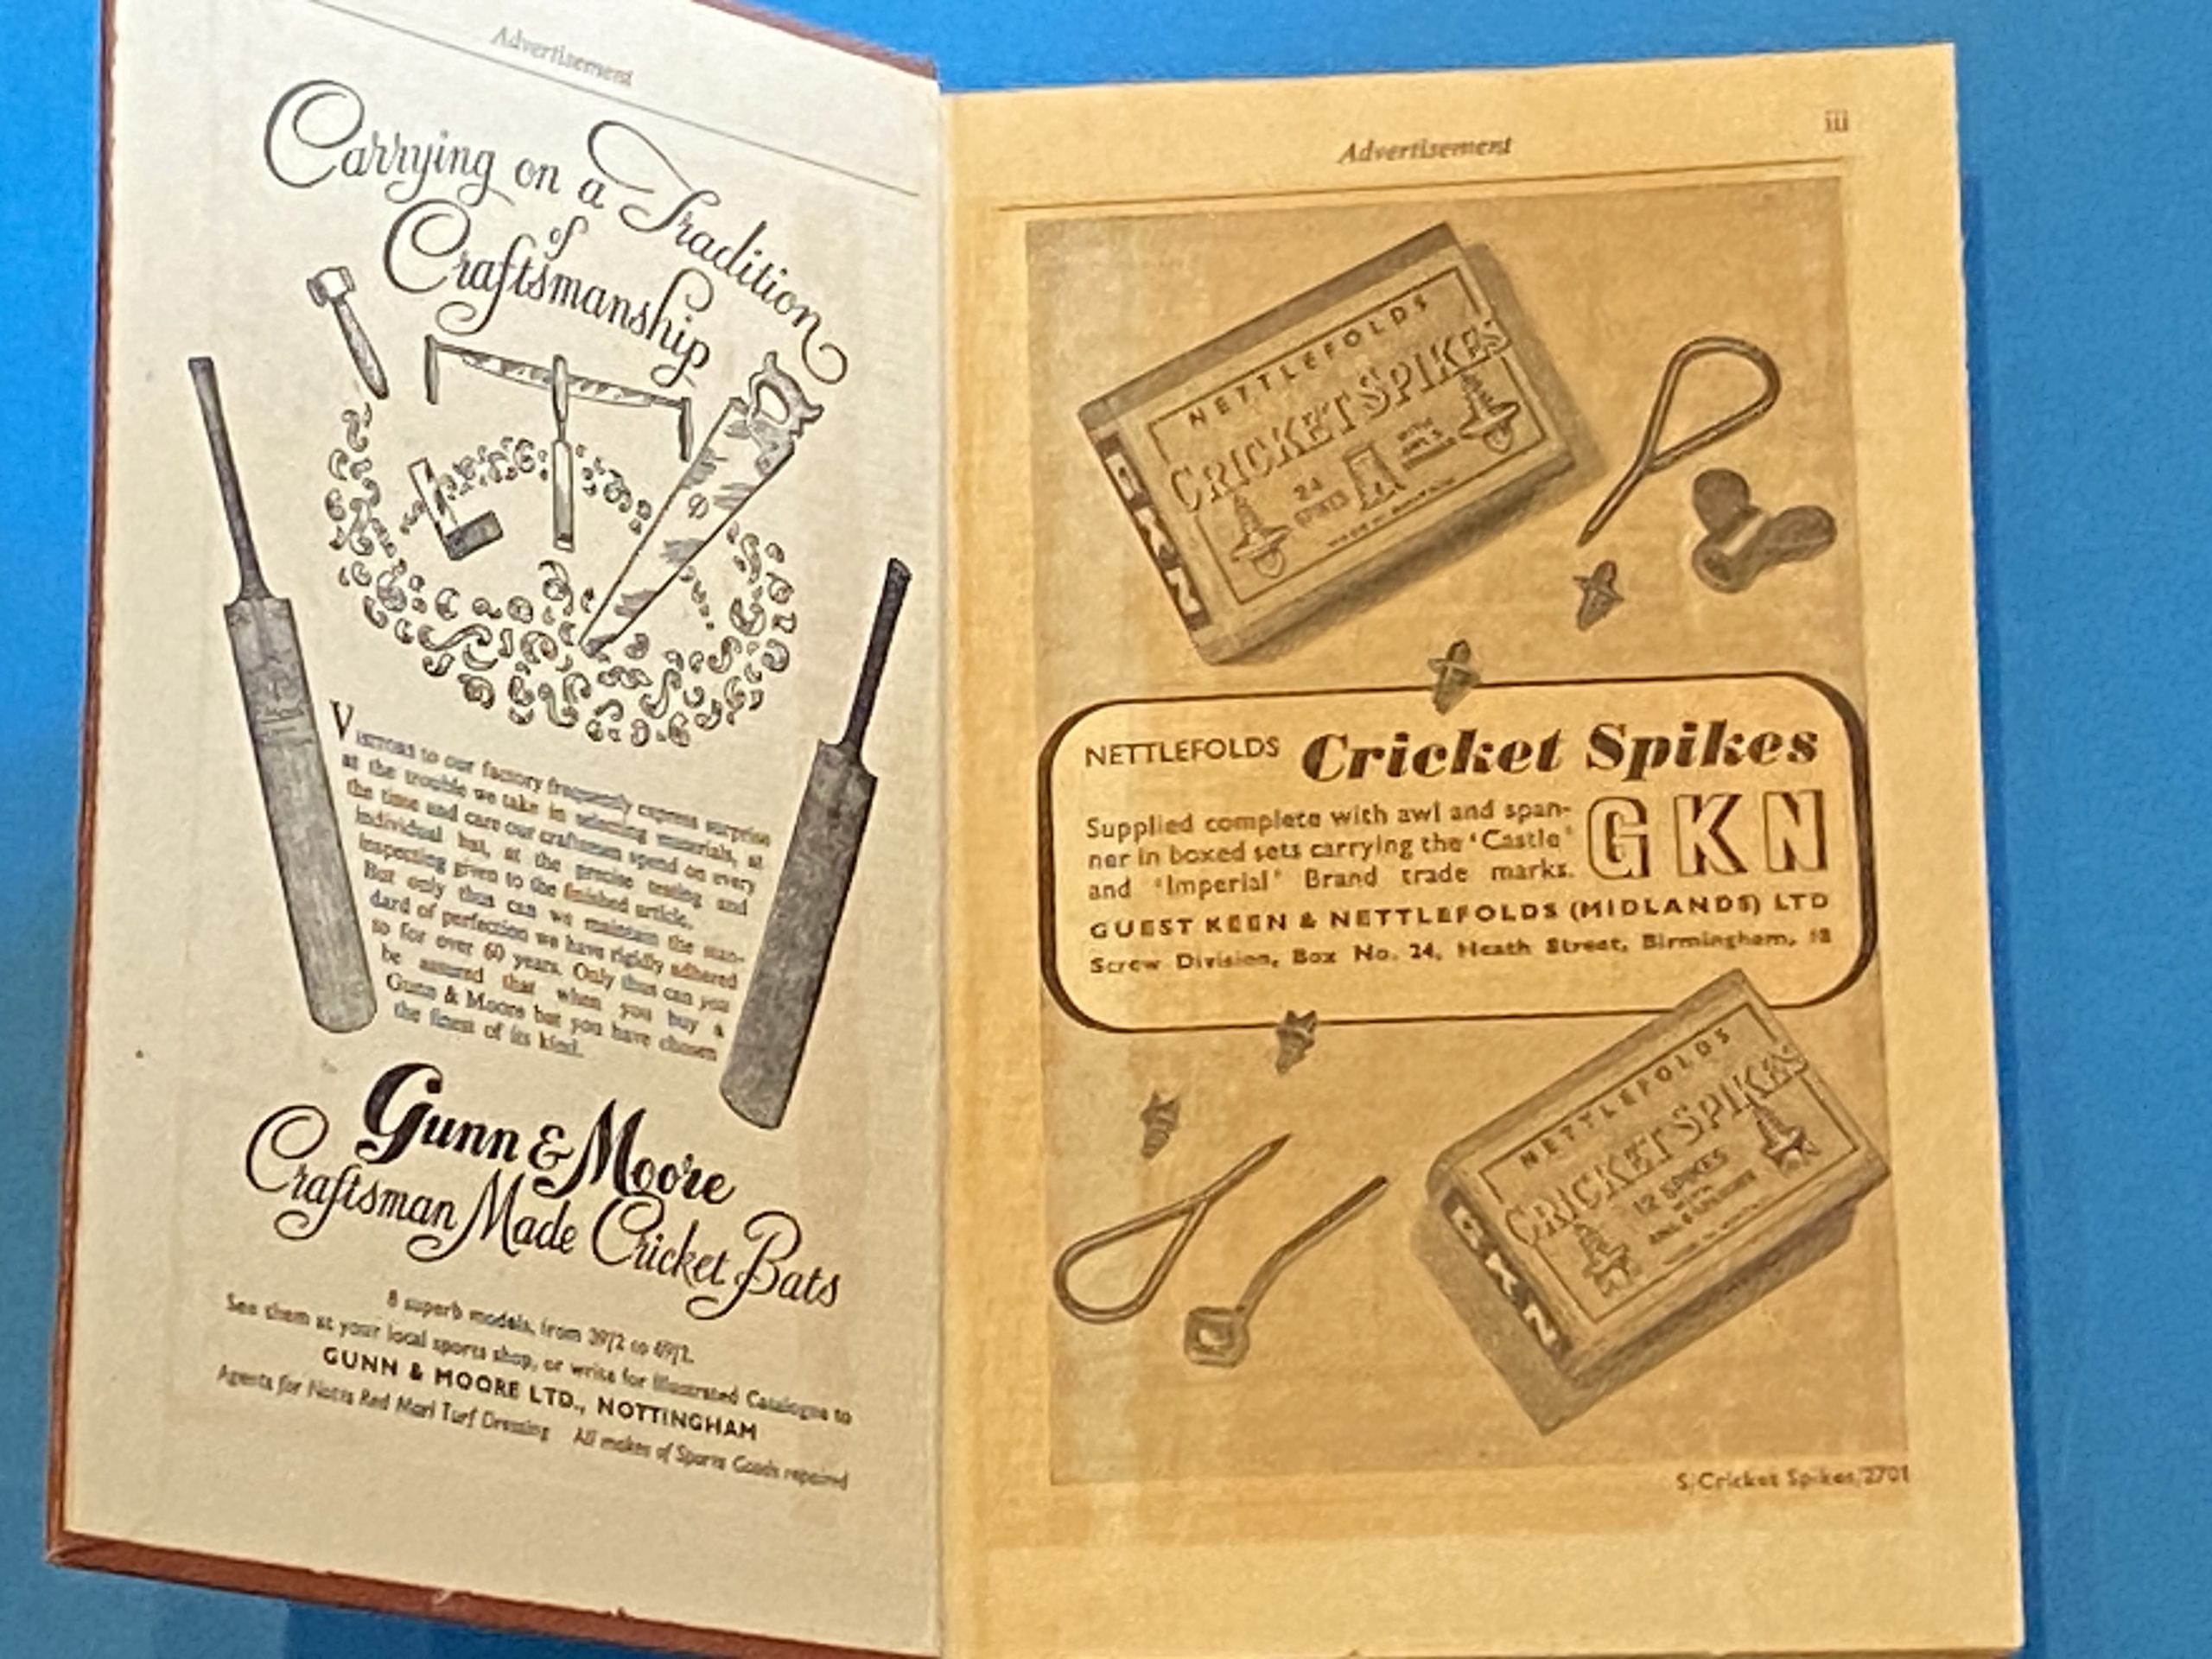 Advertisement
Carrying on a Tradition
of
Craftsmanship
VISITORS to our factory frequently express surprise
at the trouble we take in selecting materials, at
the time and care our craftsmen spend on every
individual bat, at the precise testing and
inspecting given to the finished article.
But only thus can we maintain the stan-
dard of perfection we have rigidly adhered
to for over 60 years. Only thus can you
be assured that when you buy a
Gunn & Moore bat you have chosen
the finest of its kind.
Gunn & Moore
Craftsman Made Cricket Bats
8 superb models, from to
See them at your local sports shop, or write for Illustrated Catalogue to
GUNN & MOORE LTD., NOTTINGHAM
Agents for Notts Red Marl Turf Dressing All makes of Sports Goods repaired
Advertisement iii
NETTLEFOLDS
CRICKET SPIKES
24
SPIKES
GKN
NETTLEFOLDS Cricket Spikes
Supplied complete with awl and span-
ner in boxed sets carrying the 'Castle'
and 'Imperial' Brand trade marks.
GKN
GUEST KEEN & NETTLEFOLDS (MIDLANDS) LTD
Screw Division, Box No. 24, Heath Street, Birmingham, 18
NETTLEFOLDS
CRICKET SPIKES
12 SPIKES
WITH
AWL & SPANNER
GKN
S/Cricket Spikes/2701